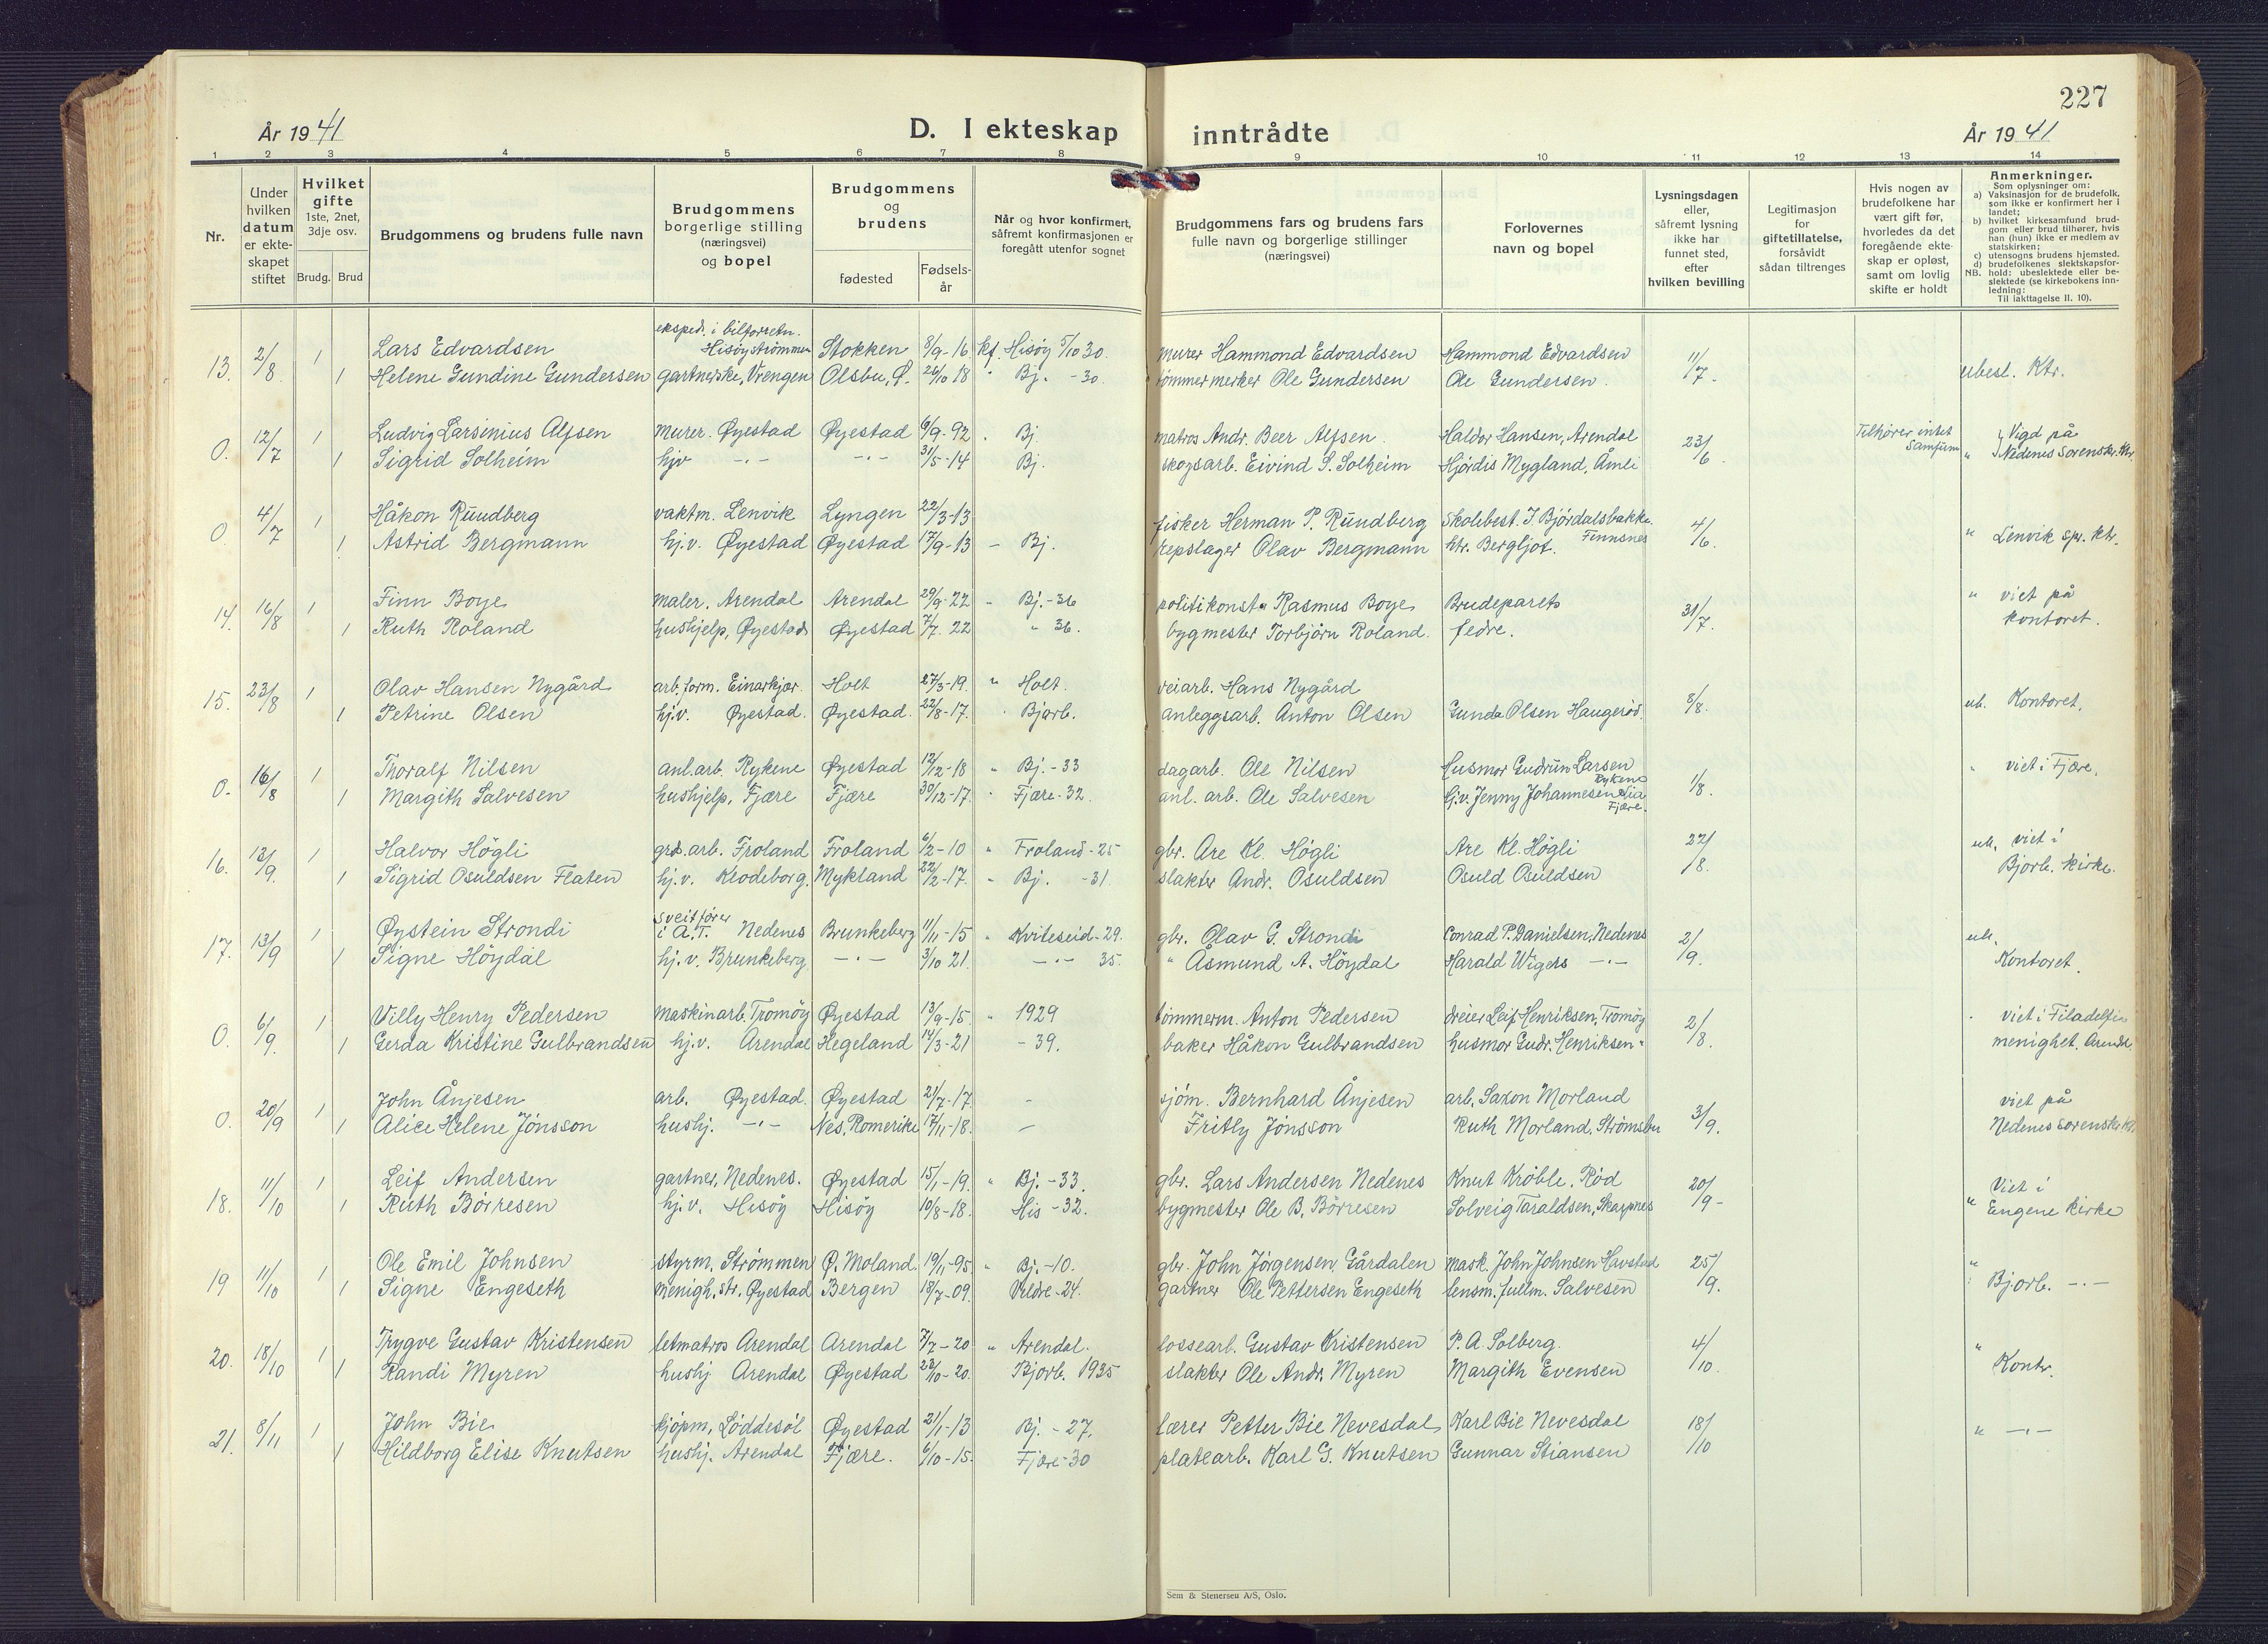 227
År 1941 D. I ekteskap inntrådte År 1941
1 2 3 4 5 6 7 8 9 10 11 12 13 14
Nr.
Under hvilken datum er ekteskapet stiftet
Hvilket gifte 1ste, 2net, 3dje osv. Brudg. Brud
Brudgommens og brudens fulle navn
Brudgommens borgerlige stilling (næringsvei) og bopel
Brudgommens og brudens fødested Fødselsår
Når og hvor konfirmert, såfremt konfirmasjonen er foregått utenfor sognet
Brudgommens fars og brudens fars fulle navn og borgerlige stillinger (næringsvei)
Forlovernes navn og bopel
Lysningsdagen eller, såfremt lysning ikke har funnet sted, efter hvilken bevilling
Legitimasjon for giftetillatelse, forsåvidt sådan tiltrenges
Hvis nogen av brudefolkene har vært gift før, hvorledes da det foregående ekteskap er opløst, samt om lovlig skifte er holdt
Anmerkninger.
Som oplysninger om:
a) Vaksinasjon for de brudefolk, som ikke er konfirmert her i landet;
b) hvilket kirkesamfund brudgom eller brud tilhører, hvis han (hun) ikke er medlem av statskirken;
c) utensogns brudens hjemsted.
d) brudefolkenes slektskapsforhold: ubeslektede eller beslektede (se kirkebokens innledning:
NB. Til iakttagelse II. 10).
13. 2/8 1 Lars Edvardsen eksped. i bilforretn. Hisøystrømmen Stokken 8/9-16 kf. Hisøy 5/10 30. murer Hammond Edvardsen Hammond Edvardsen 11/7. ubesl. Ktr.
1 Helene Gundine Gundersen gartnerske, Vrengen Olsbu, Ø. 26/10 18 " Bj. -30. tømmermerker Ole Gundersen Ole Gundersen.
0. 12/7 1 Ludvig Larsinius Alfsen murer. Øyestad Øyestad 6/9-92 . Bj. matros Andr. Beer Alfsen. Haldor Hansen, Arendal 23/6. Tilhører intet Samfunn Vigd på
1 Sigrid Solheim hjv -"- -"- 31/5-14 Bj. skogsarb. Eivind S. Solheim Hjørdis Mygland, Åmli " Nedenes Sorenskr. Ktr.
0. 4/7 1 Håkon Rundberg vaktm. Lenvik Lyngen 22/3-13 fisker Herman P. Rundberg Skolebest. I Bjørdalsbakke Finnsnes 4/6. " Lenvik spr. ktr.
1 Astrid Bergmann hj.v. Øyestad Øyestad 17/9-13 - Bj. repslager Olav Bergmann htr. Bergljot.
14. 16/8 1 Finn Boye maler. Arendal Arendal 29/9-22 " Bj.-36 politikonst. Rasmus Boye Brudeparets 31/7. " viet på
1 Ruth Roland hushjelp, Øyestad Øyestad 7/7. 22 " 36. bygmester Torbjørn Roland. fedre. kontoret.
15. 23/8 1 Olav Hansen Nygård arb.form. Einarkjær. Holt 27/3-19. " Holt. veiarb. Hans Nygård 8/8. ub. Kontoret.
1 Petrine Olsen hj.v. Øyestad. Øyestad. 22/8-17. " Bjorb. anleggsarb. Anton Olsen Gunda Olsen Haugerød.
0. 16/8 1 Thoralf Nilsen anl.arb. Rykene Øyestad 12/12-18 " Bj.-33 dagarb. Ole Nilsen Husmor Gudrun Larsen Rykene 1/8. " viet i Fjære.
1 Margith Salvesen hushjelp, Fjære Fjære 30/12-17. " Fjære-32. anl. arb. Ole Salvesen hj.v. Jenny Johannesen Lia Fjære.
16. 13/9. 1 Halvor Høgli grd.arb. Froland Froland 6/2-10 " Froland-25 gbr. Are Kl. Høgli Are Kl. Høgli 22/8. ub. viet i
1 Sigrid Osuldsen Flaten hj.v. Klodeborg. Mykland 22/2-17. " Bj. -31. slakter Andr. Osuldsen Osuld Osuldsen Bjorb. kirke.
17. 13/9 1 Øystein Strondi sveitfører i A.T. Nedenes Brunkeberg 11/11-15 " Kviteseid-29. gbr. Olav G. Strondi Conrad P. Danielsen, Nedenes 2/9. ub.
1 Signe Høydal hj.v. Brunkeberg. -"- 3/10 21. -"- 35. " Åsmund A. Høydal Harald Wigers -"- Kontoret.
0. 6/9. 1 Villy Henry Pedersen maskinarb. Tromøy Øyestad 13/9-15. " 1929 tømmerm. Anton Pedersen dreier Leif Henriksen, Tromøy 2/8. viet i Filadelfia
1 Gerda Kristine Gulbrandsen hj.v. Arendal Hegeland 14/3-21 - 39. baker Håkon Gulbrandsen husmor Gudr. Henriksen " menighet. Arendal
0. 20/9 1 John Ånjesen arb. Øyestad. Øyestad 21/7-17. - sjøm. Bernhard Ånjesen arb. Saxon Morland 3/9. viet på
1 Alice Helene Jönsson hushj. -"- Nes, Romerike 17/11-18. - Fritly Jönsson Ruth Morland, Strømsbu Nedenes sorenskr. Ktr.
18. 11/10 1 Leif Andersen gartner, Nedenes. Øyestad 15/1-19. " Bj.-33. gbr. Lars Andersen Nedenes Knut Krøble. Rød 20/9- Viet i
1 Ruth Børresen hj.v. Hisøy Hisøy 10/8-18. His-32. bygmester Ole B. Børresen Solveig Taraldsen, Skarpnes " Engene kirke
19 11/10 1 Ole Emil Johnsen styrm. Strømmen Ø. Moland. 19/11-95. " Bj.-10. gbr. John Jørgensen, Gårdalen mask. John Johnsen Havstad 25/9. "
1 Signe Engeseth menigh.str. Øyestad Bergen 18/7-09. Veldre-24. gartner Ole Pettersen Engeseth lensm.fullm. Salvesen Bjorb. -"-
20. 18/10 1 Trygve Gustav Kristensen letmatros Arendal Arendal 7/7-20 " Arendal. lossearb. Gustav Kristensen P. A. Solberg. 4/10. "
1 Randi Myren hushj Arendal Øyestad 23/10-20. Bjorb. 1935 slakter Ole Andr. Myren Margith Evensen Kontr.
21. 8/11 1 John Bie kjøpm, Løddesøl Øyestad 21/1-13 Bj. -27. lærer Petter Bie Nevesdal Karl Bie Nevesdal 18/10 " -"-
1 Hildborg Elise Knutsen hushj. Arendal Fjære. 6/10-15. Fjære-30 platearb. Karl G. Knutsen Gunnar Stiansen
Sem & Stenersen A/S, Oslo.